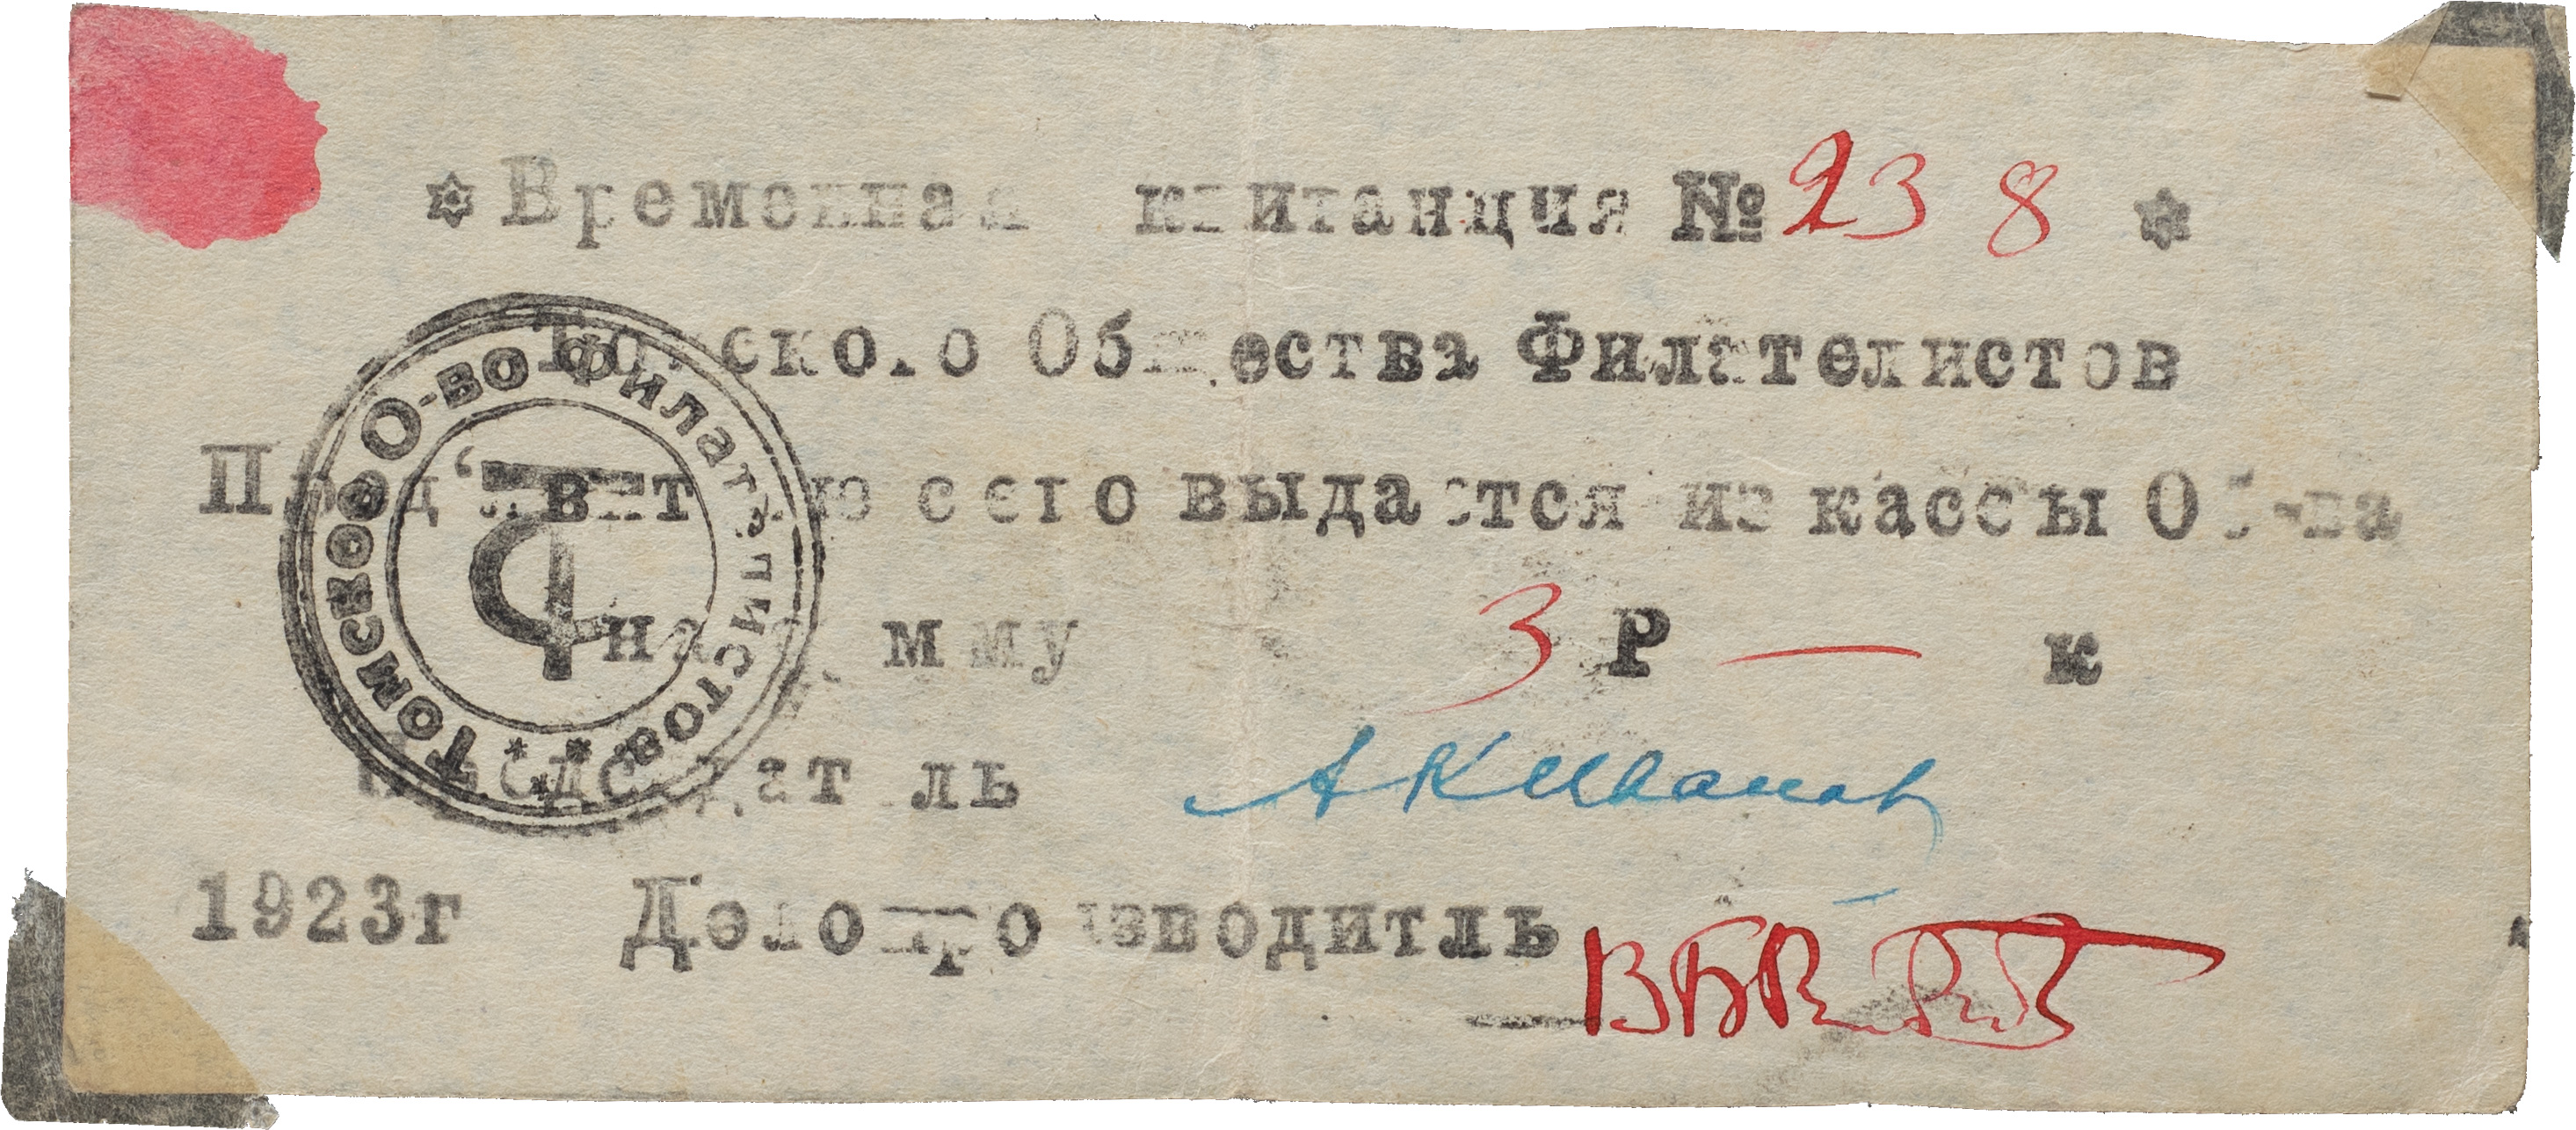 Временная квитанция № 238
Томского Общества Филателистов
Пред'явителю сего выдается из кассы Об-ва
на сумму 3 Р — к
Председатель АКИванов
1923г Делопроизводитль
Томское О-во Филателистов